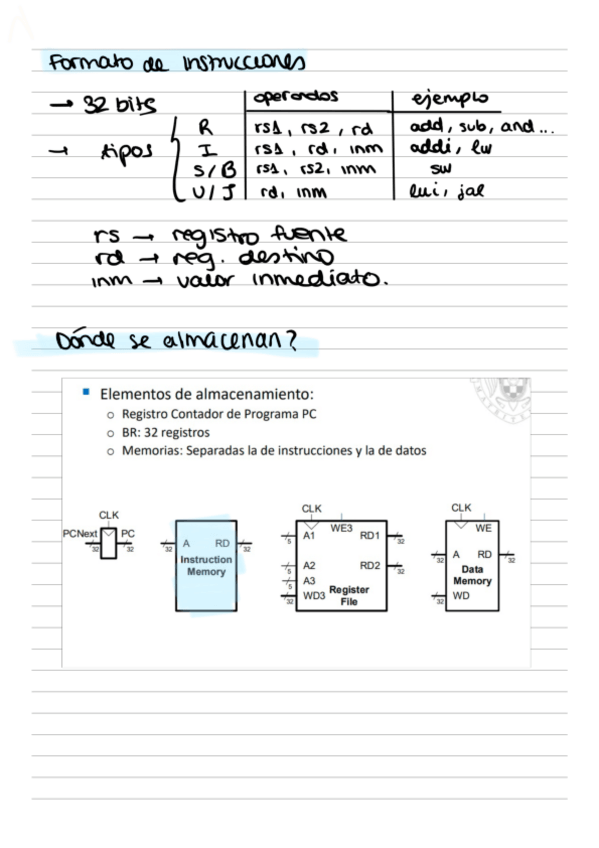 Formato de instrucciones
→ 32 bits
operandos ejemplo
→ tipos
R rs1, rs2, rd add, sub, and...
I rs1, rd, inm addi, lw
S/B rs1, rs2, inm sw
U/J rd, inm lui, jal
rs → registro fuente
rd → reg. destino
inm → valor inmediato.
Dónde se almacenan?
▪ Elementos de almacenamiento:
o Registro Contador de Programa PC
o BR: 32 registros
o Memorias: Separadas la de instrucciones y la de datos
CLK
PCNext PC
32 32
A RD
32 32
Instruction
Memory
CLK
WE3
A1 RD1
5 32
A2 RD2
5 32
A3
5
WD3
32
Register
File
CLK
WE
A RD
32 32
Data
Memory
WD
32